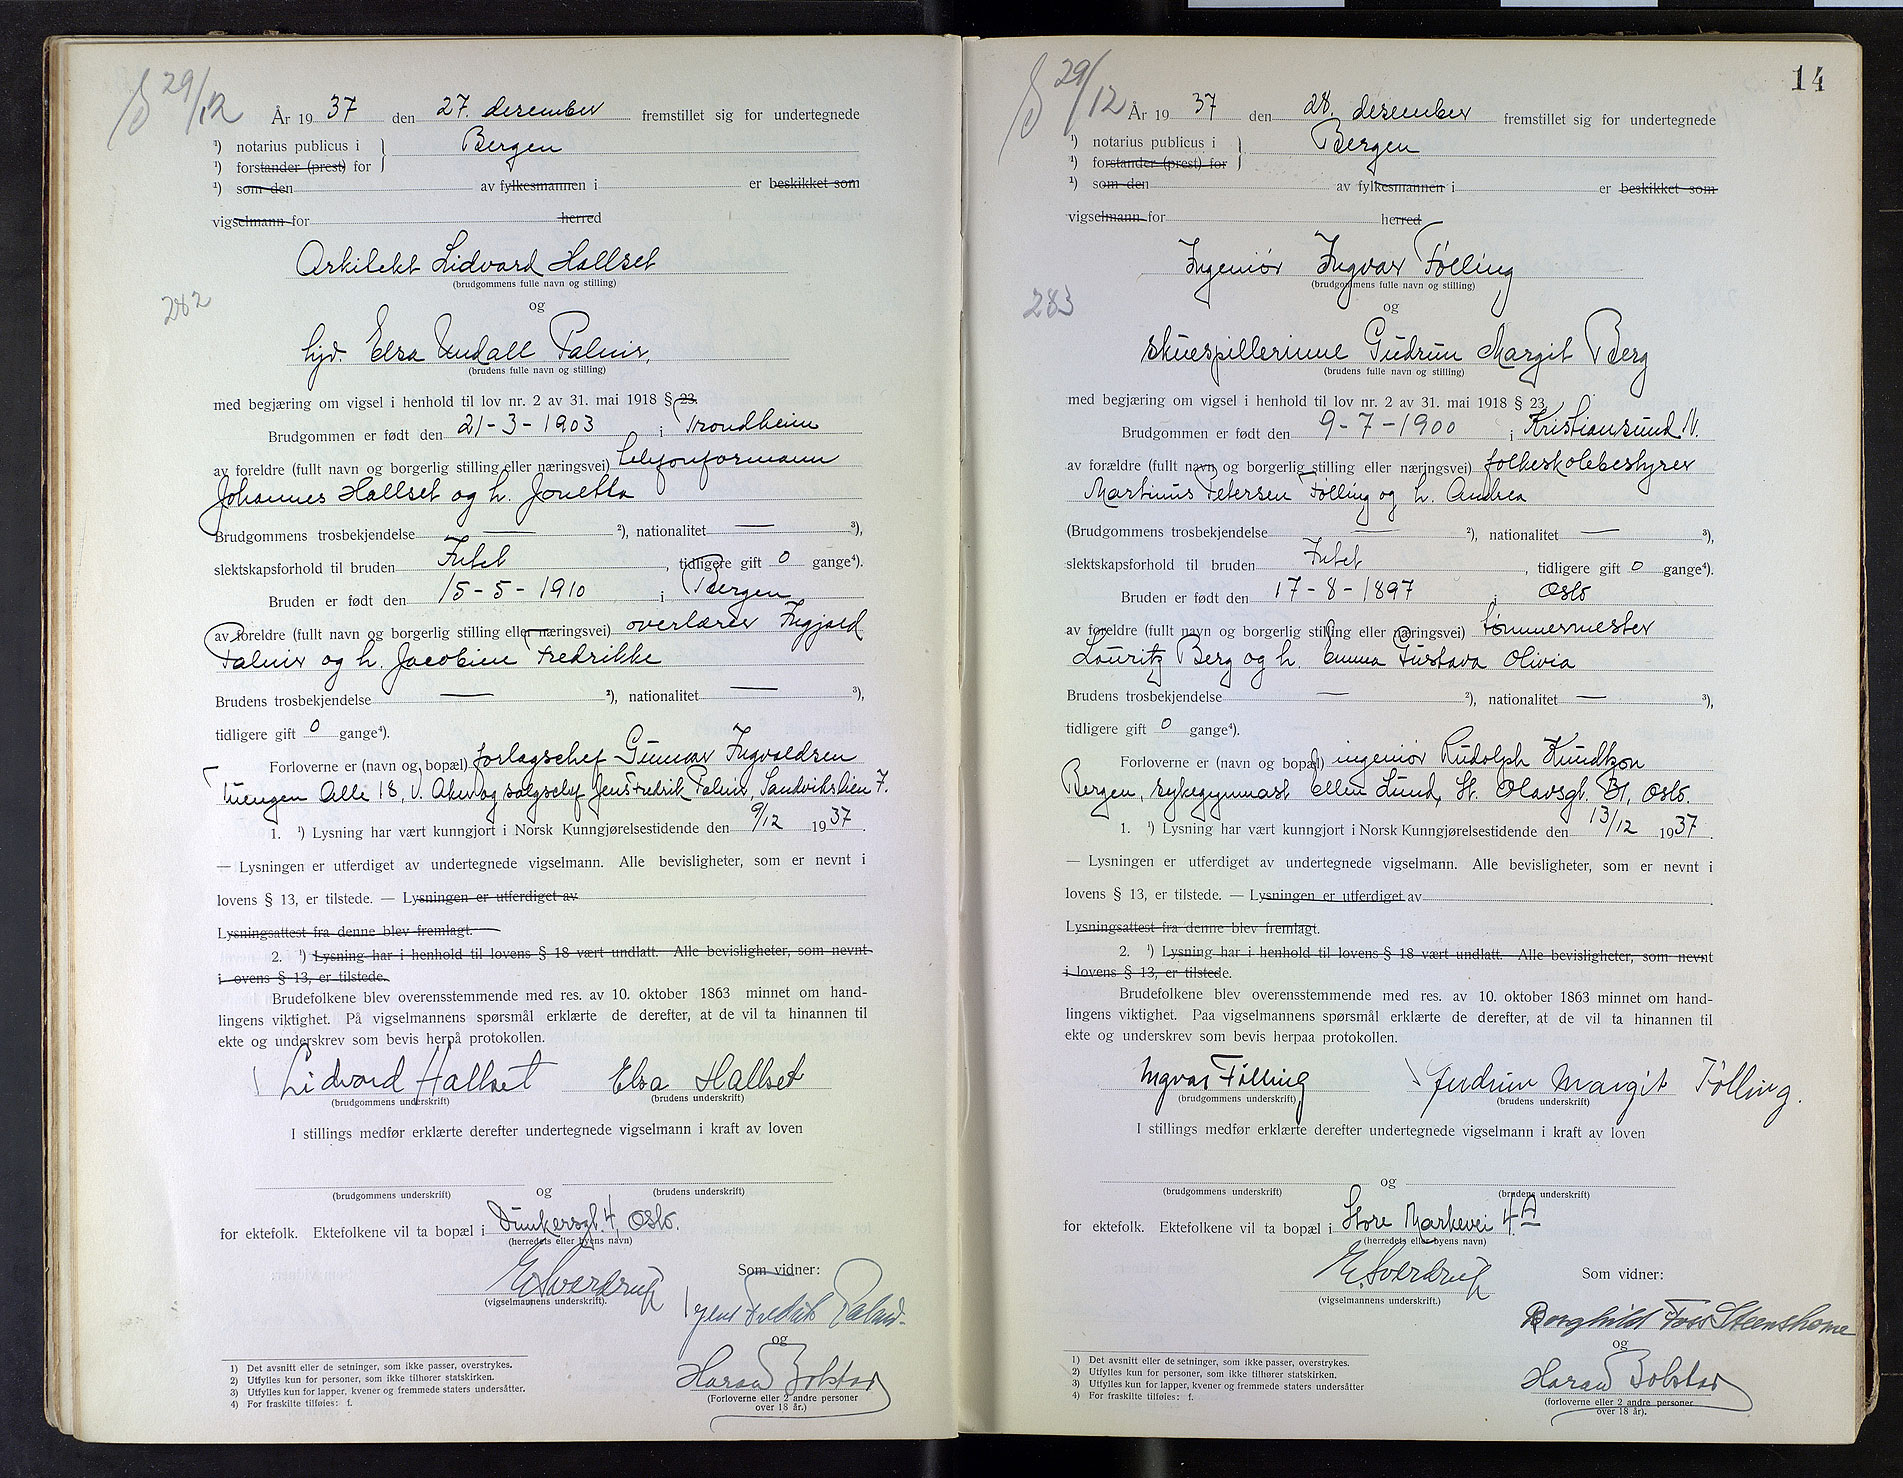 29/12
År 19 37 den 27. desember fremstillet sig for undertegnede
¹) notarius publicus i } Bergen
¹) forstander (prest) for
¹) som den av fylkesmannen i er beskikket som
vigselmann for herred
Arkitekt Lidvard Hallset
(brudgommens fulle navn og stilling)
282
og
hjv. Elsa Undall Falnir,
(brudens fulle navn og stilling)
med begjæring om vigsel i henhold til lov nr. 2 av 31. mai 1918 § 23.
Brudgommen er født den 21-3-1903 i Trondheim
av foreldre (fullt navn og borgerlig stilling eller næringsvei) telefonformann
Johannes Hallset og h. Jonetta
Brudgommens trosbekjendelse — ²), nationalitet — ³),
slektskapsforhold til bruden Intet, tidligere gift 0 gange⁴).
Bruden er født den 15-5-1910 i Bergen
av foreldre (fullt navn og borgerlig stilling eller næringsvei) overlærer Ingjald
og h. Jacobine Fredrikke
Brudens trosbekjendelse — ²), nationalitet — ³),
tidligere gift 0 gange⁴).
Forloverne er (navn og bopæl) forlagschef Gunnar Ingvaldsen
Tuengen Alle 18, V. Aker og salgschef Jens Fredrik Sandviksveien 7.
1. ¹) Lysning har vært kunngjort i Norsk Kunngjørelsestidende den 9/12 1937.
— Lysningen er utferdiget av undertegnede vigselmann. Alle bevisligheter, som er nevnt i
lovens § 13, er tilstede. — Lysningen er utferdiget av
Lysningsattest fra denne blev fremlagt.
2. ¹) Lysning har i henhold til lovens § 18 vært undlatt. Alle bevisligheter, som nevnt
i ovens § 13, er tilstede.
Brudefolkene blev overensstemmende med res. av 10. oktober 1863 minnet om hand-
lingens viktighet. På vigselmannens spørsmål erklærte de derefter, at de vil ta hinannen til
ekte og underskrev som bevis herpå protokollen.
Lidvard Hallset Elsa Hallset
(brudgommens underskrift) (brudens underskrift)
I stillings medfør erklærte derefter undertegnede vigselmann i kraft av loven
og
(brudgommens underskrift) (brudens underskrift)
for ektefolk. Ektefolkene vil ta bopæl i Dunkersgt. 4, Oslo.
(herredets eller byens navn)
E. Sverdrup
(vigselmannens underskrift).
Som vidner:
Jens Fredrik
og
Harald Bolstad
(Forloverne eller 2 andre personer
over 18 år.)
1) Det avsnitt eller de setninger, som ikke passer, overstrykes.
2) Utfylles kun for personer, som ikke tilhører statskirken.
3) Utfylles kun for lapper, kvener og fremmede staters undersåtter.
4) For fraskilte tilføies: f.
14
29/12
År 19 37 den 28. desember fremstillet sig for undertegnede
¹) notarius publicus i } Bergen
¹) forstander (prest) for
¹) som den av fylkesmannen i er beskikket som
vigselmann for herred
Ingeniør Ingvar Følling
(brudgommens fulle navn og stilling)
283
og
skuespillerinne Gudrun Margit Berg
(brudens fulle navn og stilling)
med begjæring om vigsel i henhold til lov nr. 2 av 31. mai 1918 § 23.
Brudgommen er født den 9-7-1900 i Kristiansund N.
av forældre (fullt navn og borgerlig stilling eller næringsvei) folkeskolebestyrer
Martinus Petersen Følling og h. Andrea
(Brudgommens trosbekjendelse — ²), nationalitet — ³),
slektskapsforhold til bruden Intet, tidligere gift 0 gange⁴).
Bruden er født den 17-8-1897 i Oslo
av foreldre (fullt navn og borgerlig stilling eller næringsvei) tømmermester
Lauritz Berg og h. Emma Gustava Olivia
Brudens trosbekjendelse — ²), nationalitet — ³),
tidligere gift 0 gange⁴).
Forloverne er (navn og bopæl) ingeniør Rudolph Knudtzon
Bergen, sykegymnast Ellen Lund, St. Olavsgt. Oslo.
1. ¹) Lysning har vært kunngjort i Norsk Kunngjørelsestidende den 13/12 1937.
— Lysningen er utferdiget av undertegnede vigselmann. Alle bevisligheter, som er nevnt i
lovens § 13, er tilstede. — Lysningen er utferdiget av
Lysningsattest fra denne blev fremlagt.
2. ¹) Lysning har i henhold til lovens § 18 vært undlatt. Alle bevisligheter, som nevnt
i lovens § 13, er tilstede.
Brudefolkene blev overensstemmende med res. av 10. oktober 1863 minnet om hand-
lingens viktighet. Paa vigselmannens spørsmål erklærte de derefter, at de vil ta hinannen til
ekte og underskrev som bevis herpaa protokollen.
Ingvar Følling Gudrun Margit Følling.
(brudgommens underskrift) (brudens underskrift)
I stillings medfør erklærte derefter undertegnede vigselmann i kraft av loven
og
(brudgommens underskrift) (brudens underskrift)
for ektefolk. Ektefolkene vil ta bopæl i Store Markevei 4A
(herredets eller byens navn)
E. Sverdrup
(vigselmannens underskrift.)
Som vidner:
Borghild Foss
og
Harald Bolstad
(forloverne eller 2 andre personer
over 18 år).
1) Det avsnitt eller de setninger, som ikke passer, overstrykes.
2) Utfylles kun for personer, som ikke tilhører statskirken.
3) Utfylles kun for lapper, kvener og fremmede staters undersåtter
4) For fraskilte tilføies: f.